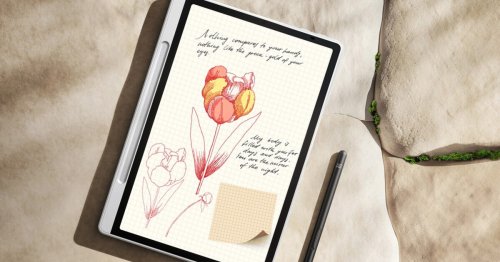 Nothing compares to your hands,
nothing like the green-gold of your
eyes.
My body is
filled with you for
days and days.
you are the mirror
of the night.